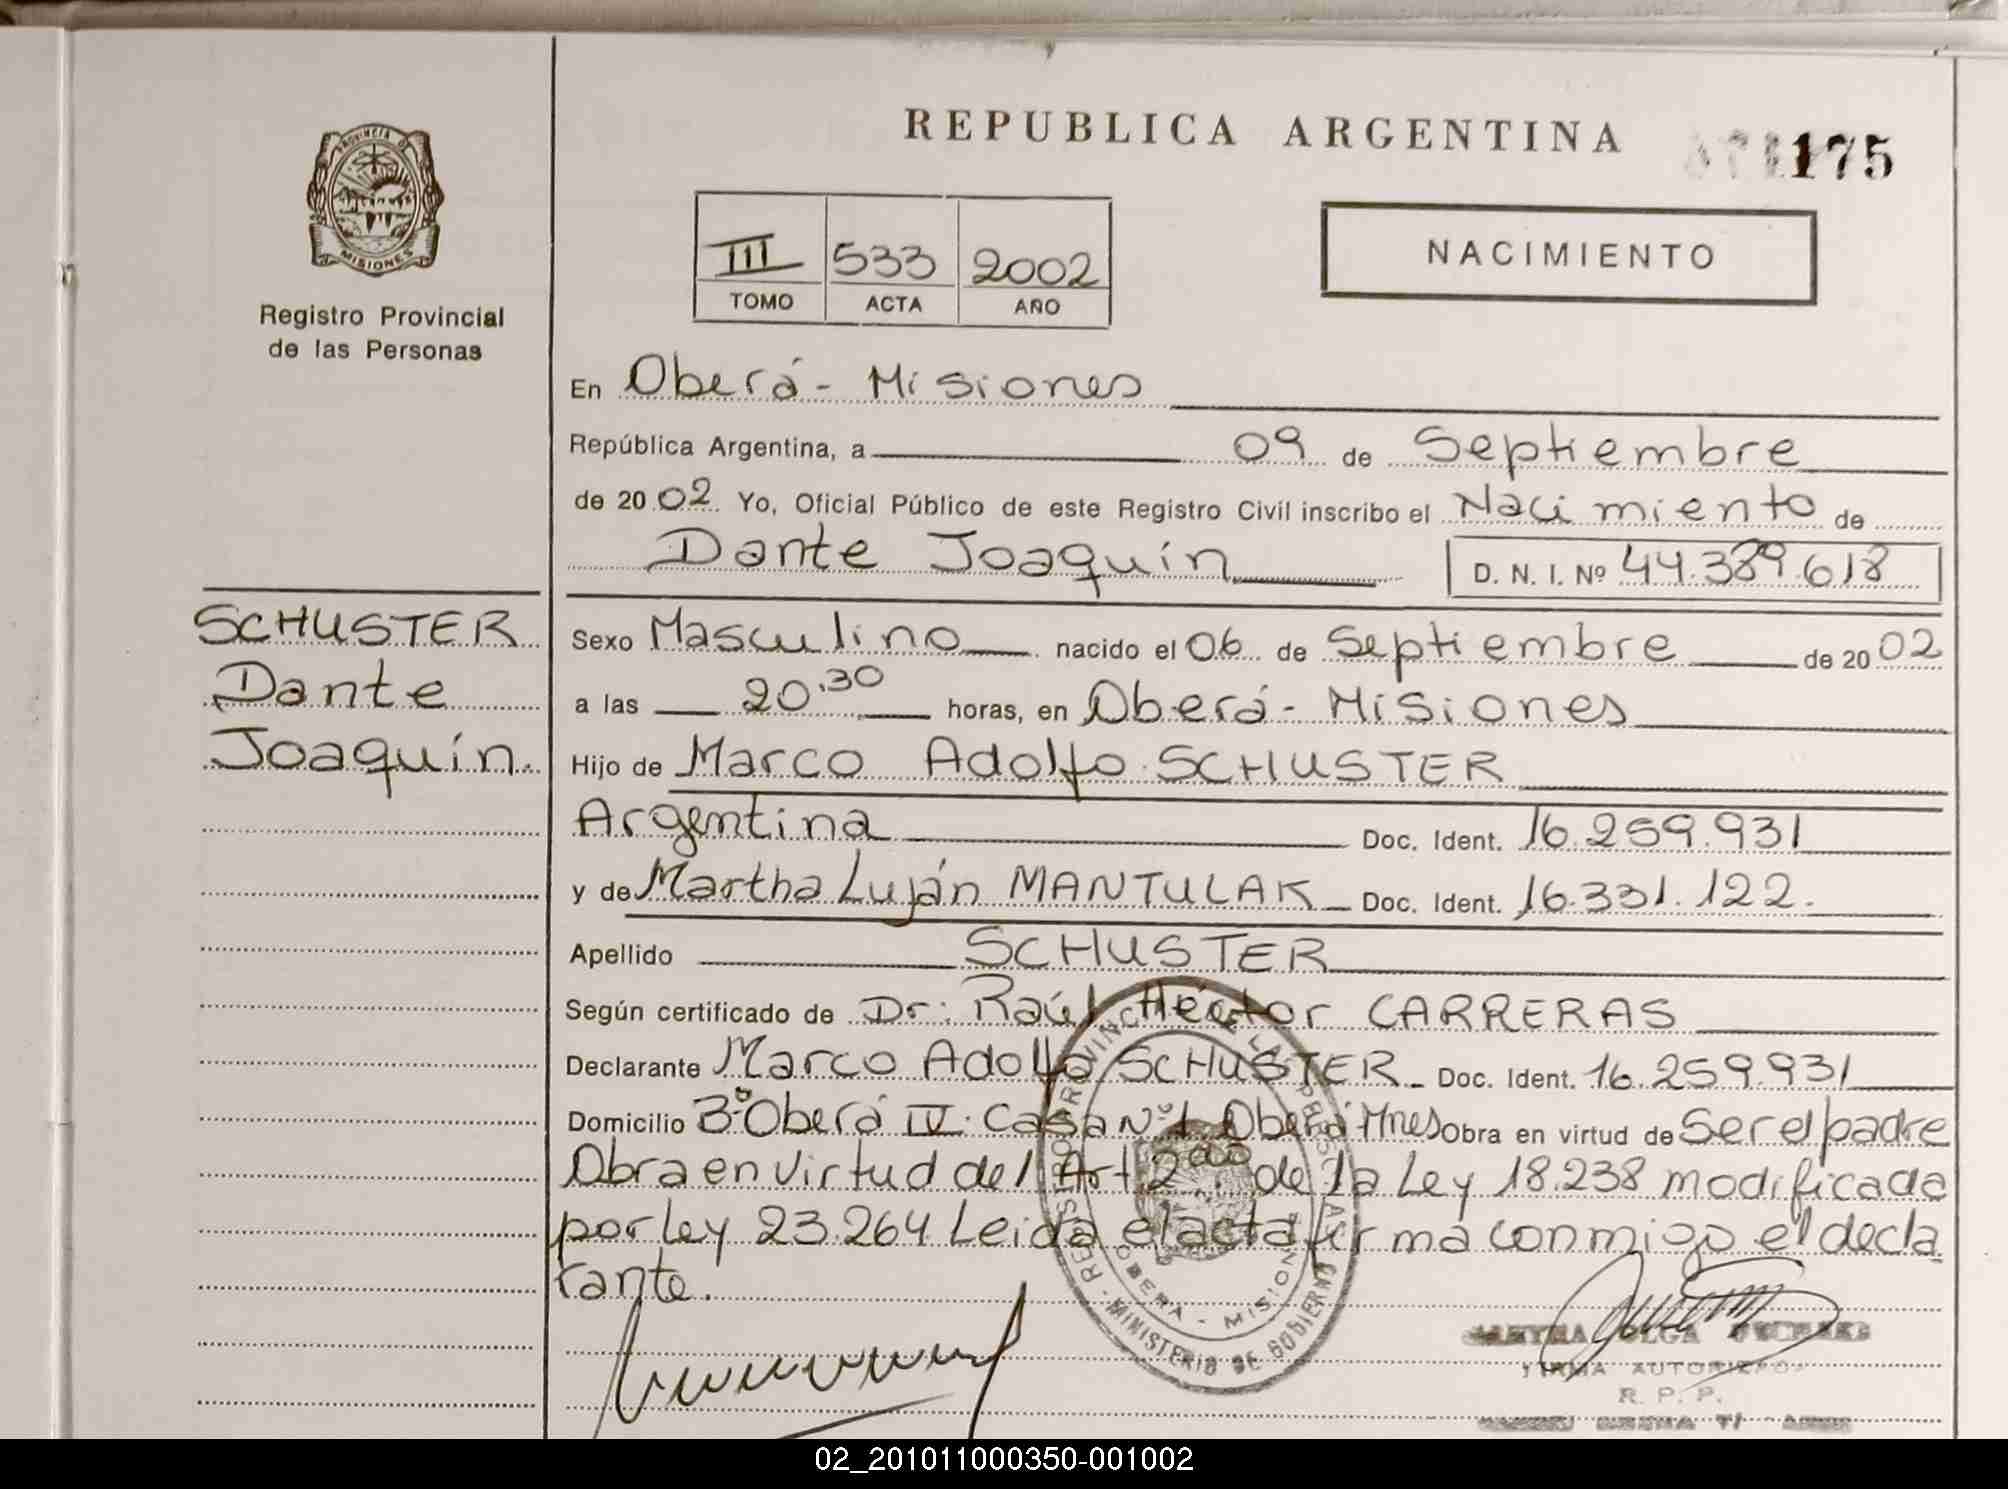 REPUBLICA ARGENTINA
175
PROVINCIA DE
MISIONES
Registro Provincial
de las Personas
III 533 2002
TOMO ACTA AÑO
NACIMIENTO
En Oberá - Misiones
República Argentina, a 09 de Septiembre
de 2002 Yo, Oficial Público de este Registro Civil inscribo el Nacimiento de
Dante Joaquín D. N. I. Nº 44.389.618
SCHUSTER
Dante
Joaquín.
Sexo Masculino nacido el 06 de Septiembre de 2002
a las 20.30 horas, en Oberá - Misiones
Hijo de Marco Adolfo SCHUSTER
Argentina Doc. Ident. 16.259.931
y de Martha Luján MANTULAK Doc. Ident. 16.331.122.
Apellido SCHUSTER
Según certificado de Dr. Raúl Héctor CARRERAS
Declarante Marco Adolfo SCHUSTER Doc. Ident. 16.259.931
Domicilio Bº Oberá IV. Casa Nº 1 Oberá Mnes Obra en virtud de Ser el padre
Obra en virtud del Art. 2do. de la Ley 18.238 modificada
por ley 23.264 Leida el acta firma conmigo el decla
rante.
REGISTRO PROVINCIAL DE LAS PERSONAS
OBERA - MISIONES
MINISTERIO DE GOBIERNO
OLGA
FIRMA AUTORIZADA
R. P. P.
02_201011000350-001002